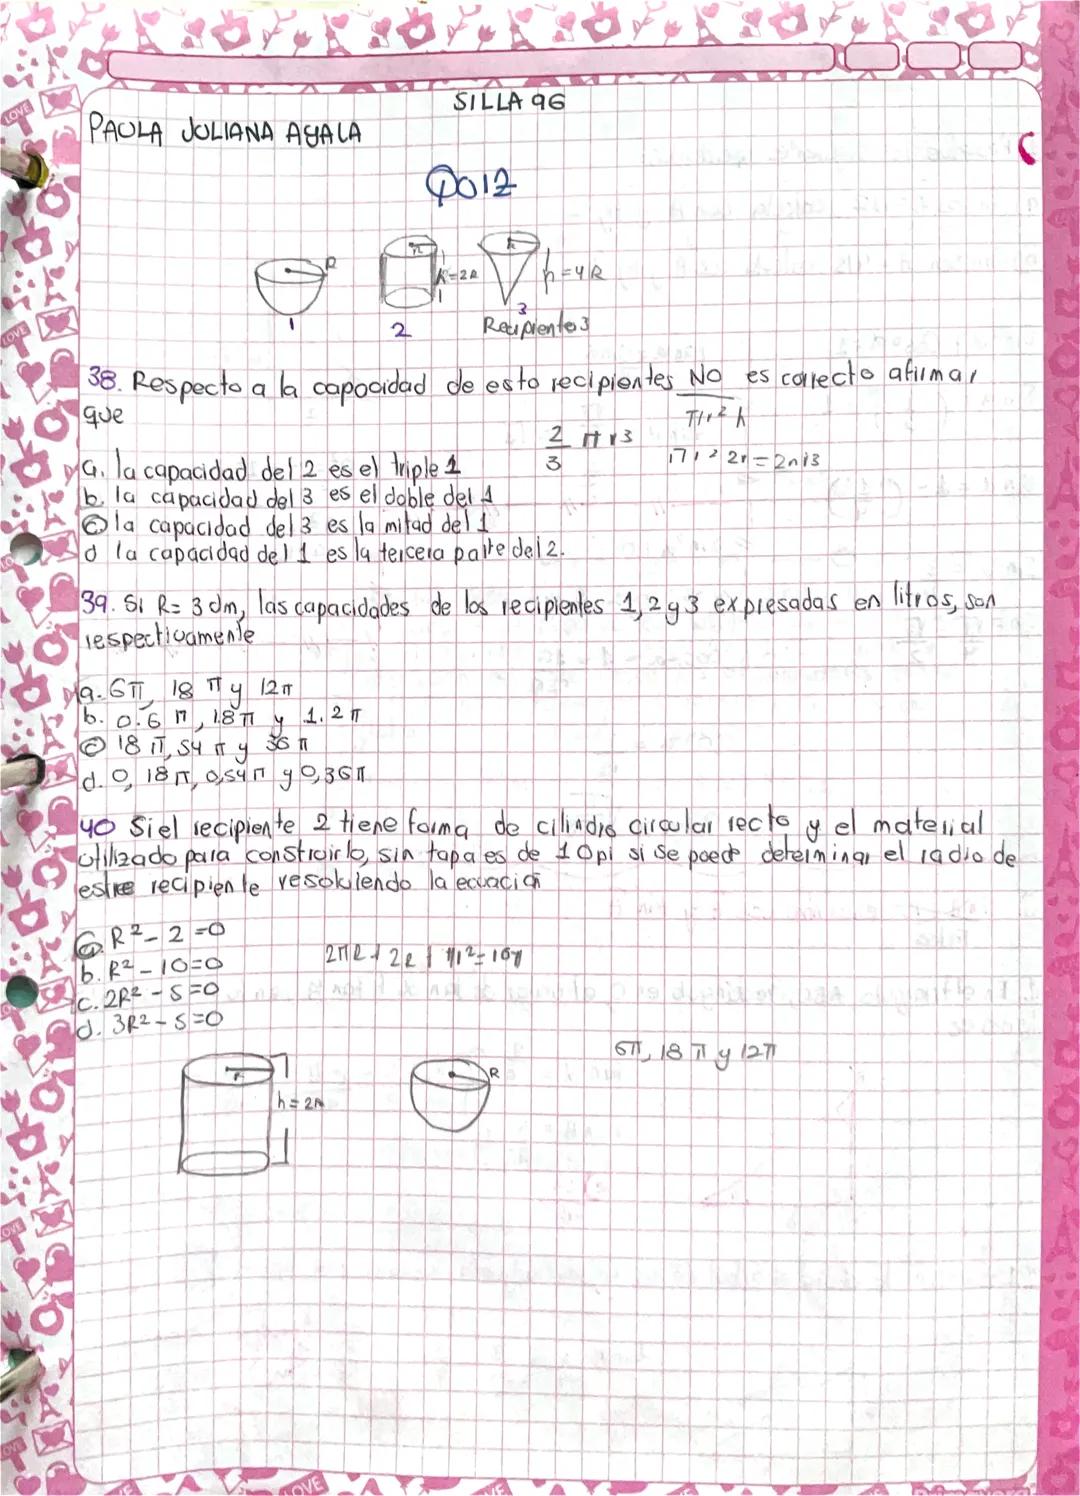 SILLA 96
PAULA JULIANA AYALA
QUIZ
R
r
h=2R
r
h=4R
1
2
3
Recipiente 3
38. Respecto a la capacidad de esto recipientes NO es correcto afirmar
que
πr² h
2/3 πr3
πr² 2r = 2πr3
a. la capacidad del 2 es el triple 1
b. la capacidad del 3 es el doble del 1
c la capacidad del 3 es la mitad del 1
d la capacidad del 1 es la tercera parte del 2.
39. Si R= 3 dm, las capacidades de los recipientes 1, 2 y 3 expresadas en litros, son
respectivamente
a. 6π, 18 π y 12π
b. 0.6 π, 1.8 π y 1.2 π
c 18 π, 54 π y 36 π
d. 0, 18π, 0,54π y 0,36π
40 Si el recipiente 2 tiene forma de cilindro circular recto y el material
utilizado para construirlo, sin tapa es de 10pi si se puede determinar el radio de
este recipiente resolviendo la ecuación
a. R² - 2 = 0
b. R² - 10 = 0
2πR · 2R + πr² = 10π
c. 2R² - 5 = 0
d. 3R² - 5 = 0
6π, 18 π y 12π
r
h = 2r
R
LOVE